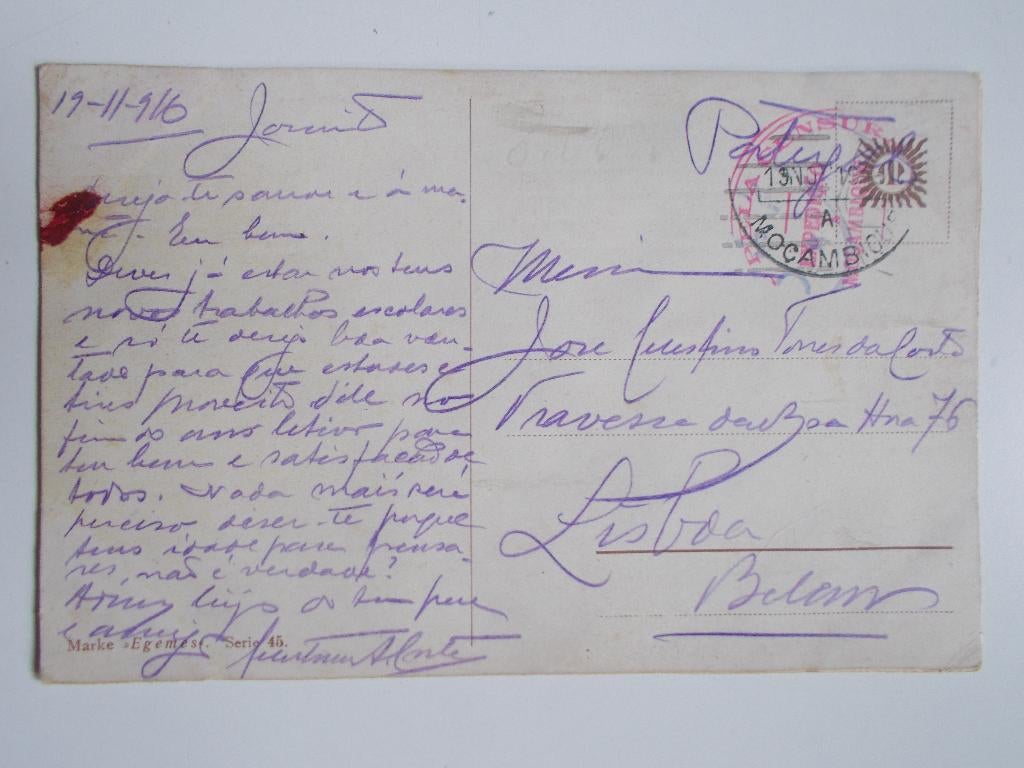 19-11-916
José
desejo-te saude e á ma-
Eu bem.
Deves já estar nos teus
novos trabalhos escolares
e só te desejo boa von-
tade para que estudes e
tires proveito dele no
fim do ano letivo, para
teu bem e satisfação de
todos. Nada mais será
perciso diser-te porque
tens idade para pensa-
res, não é verdade?
do teu pae
e amigo
Costa
Marke »Egemes«. Serie 45.
Portugal
CENSURA
13 NO
A
MOÇAMBIQUE
Menino
José Celestino Torres da Costa
Travessa da Boa Hora 76
Lisboa
Belem